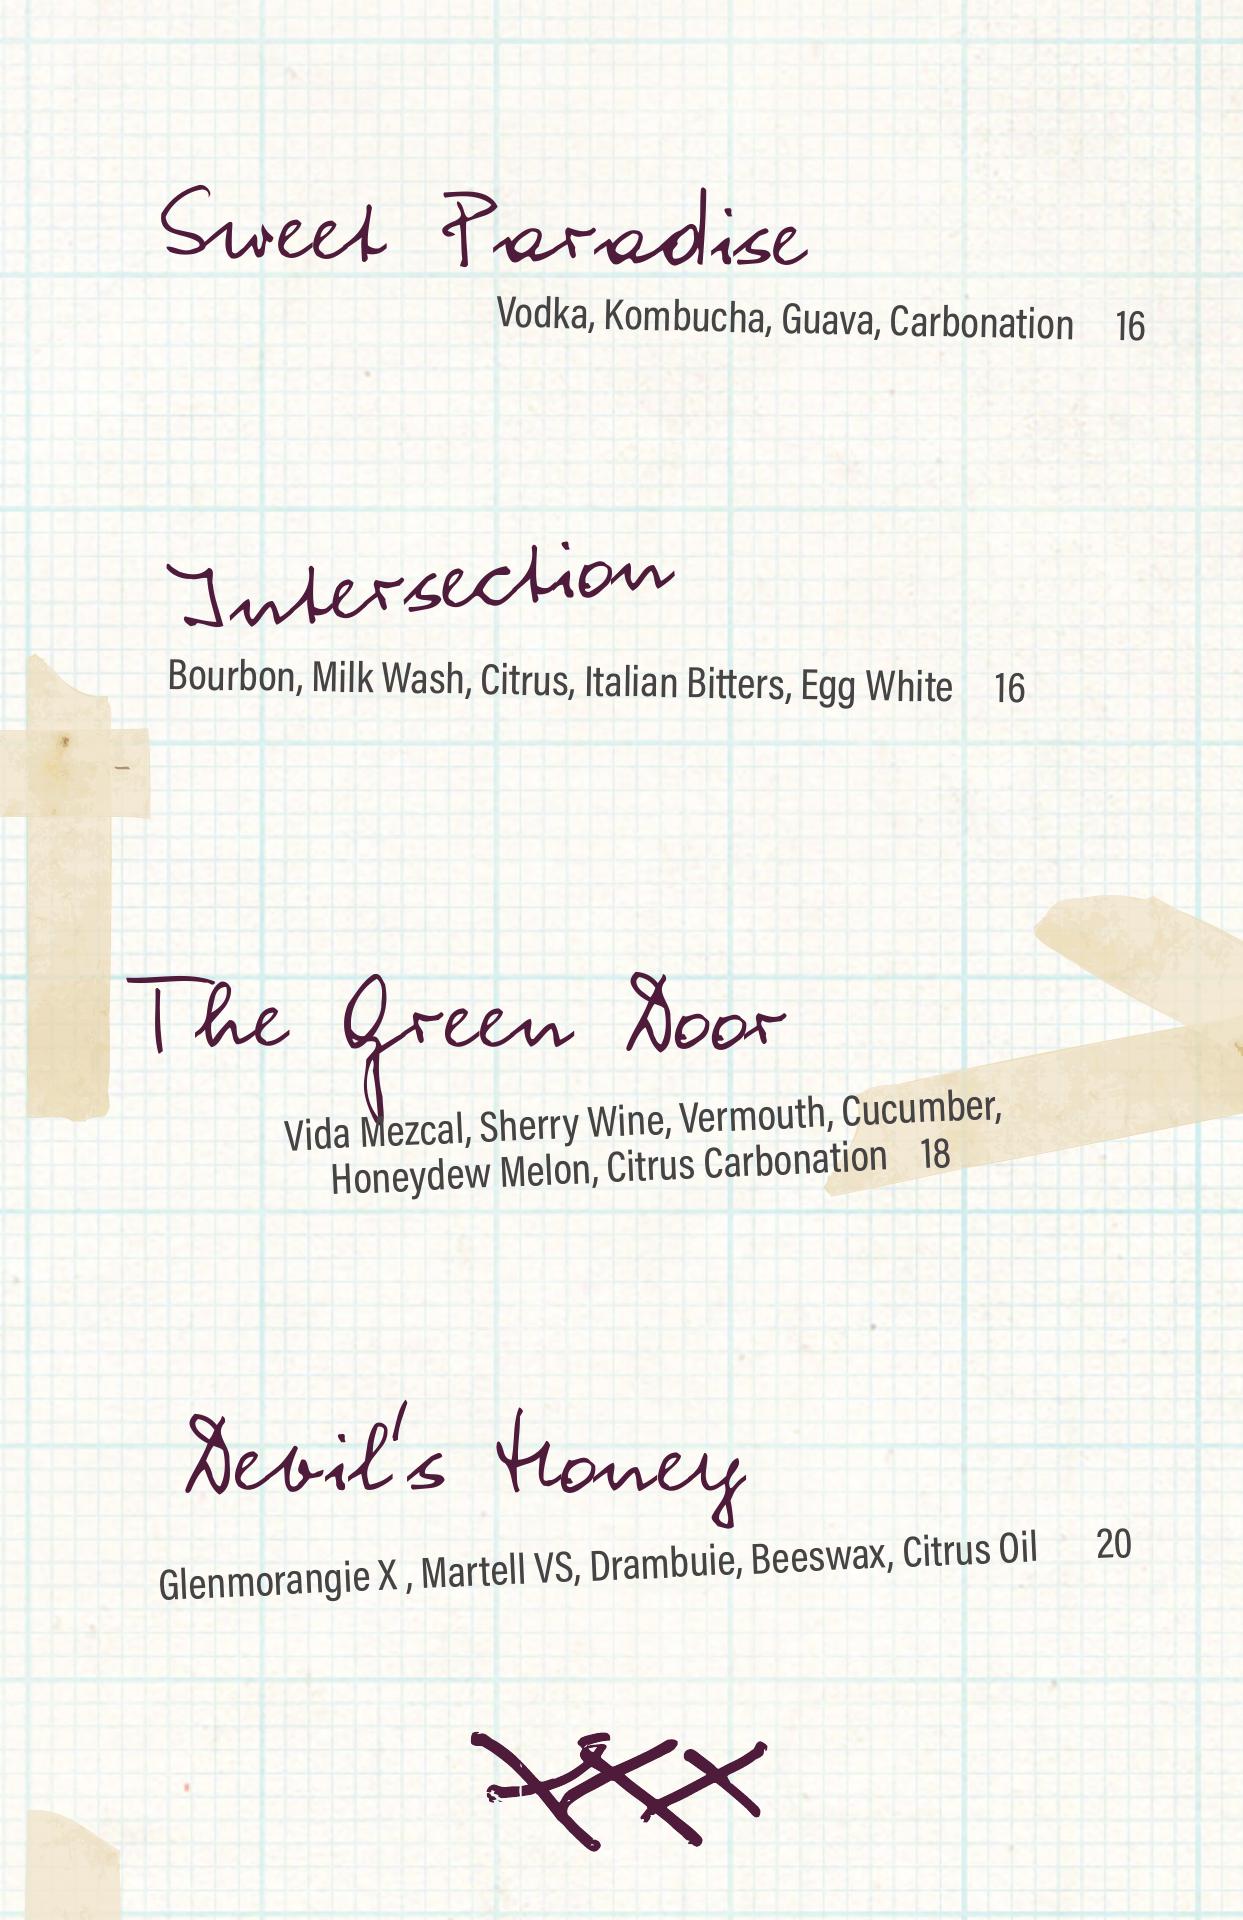 Sweet Paradise
Vodka, Kombucha, Guava, Carbonation 16
Intersection
Bourbon, Milk Wash, Citrus, Italian Bitters, Egg White 16
The Green Door
Vida Mezcal, Sherry Wine, Vermouth, Cucumber,
Honeydew Melon, Citrus Carbonation 18
Devil's Honey
Glenmorangie X , Martell VS, Drambuie, Beeswax, Citrus Oil 20
XXX